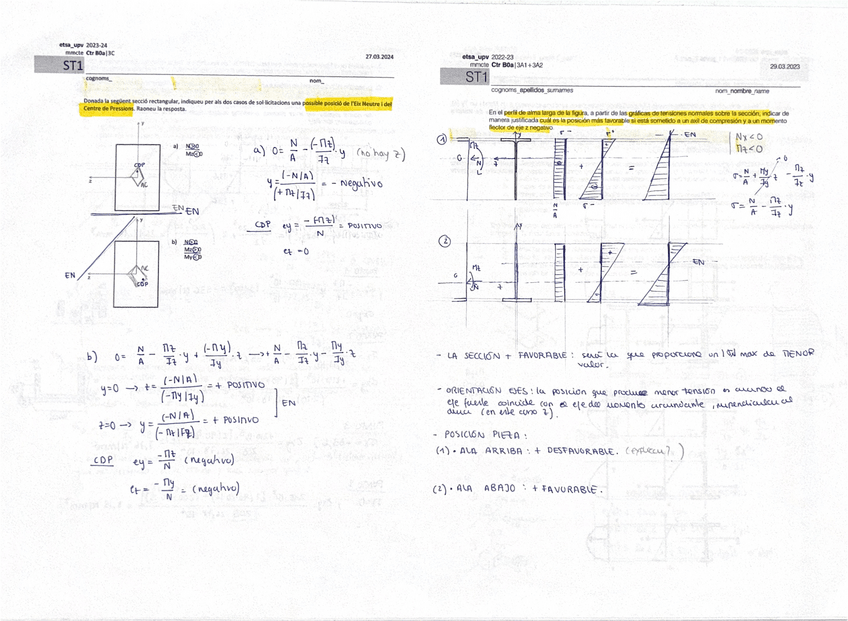 etsa_upv 2023-24
mmcte Ctr B0a|3C
27.03.2024
ST1
cognoms_
nom_
Donada la següent secció rectangular, indiqueu per als dos casos de sol·licitacions una possible posició de l'Eix Neutre i del
Centre de Pressions. Raoneu la resposta.
y
a) N>0
Mz<0
CDP
z
G
EN EN
a) 0 = N/A - (-Mz)/Iz · y (no hay z)
y = (-N/A)/(+Mz/Iz) = - Negativo
CDP ey = -(-Mz)/N = POSITIVO
ez = 0
y
b) N>0
EN
z
CDP
b) 0 = N/A - Mz/Iz · y + (-My)/Iy · z → + N/A - Mz/Iz · y - My/Iy · z
y=0 → z = (-N/A)/(-My/Iy) = + POSITIVO
EN
z=0 → y = (-N/A)/(-Mz/Iz) = + POSITIVO
CDP ey = -Mz/N (negativo)
ez = -My/N = (negativo)
etsa_upv 2022-23
mmcte Ctr B0a|3A1+3A2
29.03.2023
ST1
cognoms_apellidos_surnames
nom_nombre_name
En el perfil de alma larga de la figura, a partir de las gráficas de tensiones normales sobre la sección, indicar de
manera justificada cuál es la posición más favorable si está sometido a un axil de compresión y a un momento
flector de eje z negativo
1
G
Mz
N
z
y
σ-
+
σ+
=
EN
N/A
σ-
Nx<0
Mz<0
σ = N/A + My/Iy · z - Mz/Iz · y
0
σ = N/A - Mz/Iz · y
2
G
Mz
N
z
y
+
=
EN
- LA SECCIÓN + FAVORABLE : será la que proporcione un |σ| max de MENOR
valor.
- ORIENTACIÓN EJES : la posición que produce menor tensión es cuando el
eje fuerte coincide con el eje del momento actuante, perpendicular al
alma (en este caso z).
- POSICIÓN PIEZA :
(1) · ALA ARRIBA : + DESFAVORABLE.
(2) · ALA ABAJO : + FAVORABLE.